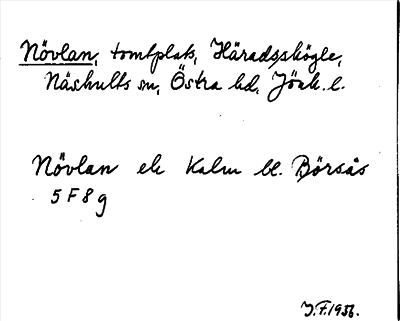 Növlan, tomtplats, Häradsskögle,
Näshults sn, Östra hd, Jönk. l.
Növlan ek Kalm bl. Börsås
5 F 8 g
J.F. 1956.